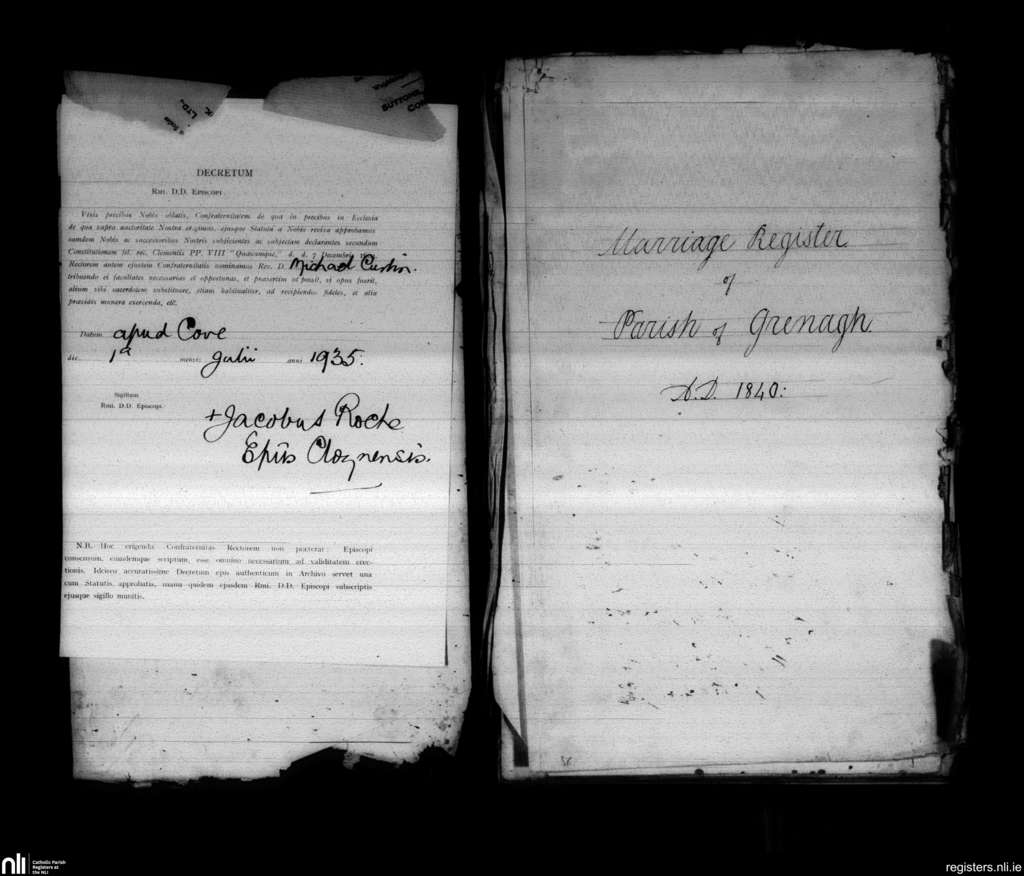 LTD.
BUTTONS,
DECRETUM
Rmi. D.D. Episcopi
Visis precibus Nobis oblatis, Confraternitatem de qua in precibus in Ecclesia
de qua supra auctoritate Nostra erigimus, ejusque Statuta a Nobis revisa approbamus
eamdem Nobis ac successoribus Nostris subjicientes ac subjectam declarantes secundum
Constitutionem fel. rec. Clementis PP. VIII "Quaecumque," d. d. 7 Decembris
Rectorem autem ejusdem Confraternitatis nominamus Rev. D. Michael Curtin.
tribuendo ei facultates necessarias et opportunas, et praesertim ut possit, si opus fuerit,
alium sibi sacerdotem substituere, etiam habitualiter, ad recipiendos fideles, et alia
praedicta munera exercenda, etc.
Datum apud Cove
die 1a mensis Julii anni 1935.
Sigillum
Rmi. D.D. Episcopi
+Jacobus Roche
Epus Cloynensis.
N.B. Hoc erigenda Confraternitas Rectorem non praeterat Episcopi
consensum, eumdemque scriptum, esse omnino necessarium ad validitatem erec-
tionis. Idcirco accuratissime Decretum ejus authenticum in Archivo servet una
cum Statutis approbatis, manu quidem ejusdem Rmi. D.D. Episcopi subscriptis
ejusque sigillo munitis.
Marriage Register
of
Parish of Grenagh
A.D. 1840:
nli
Catholic Parish
Registers at
the NLI
registers.nli.ie